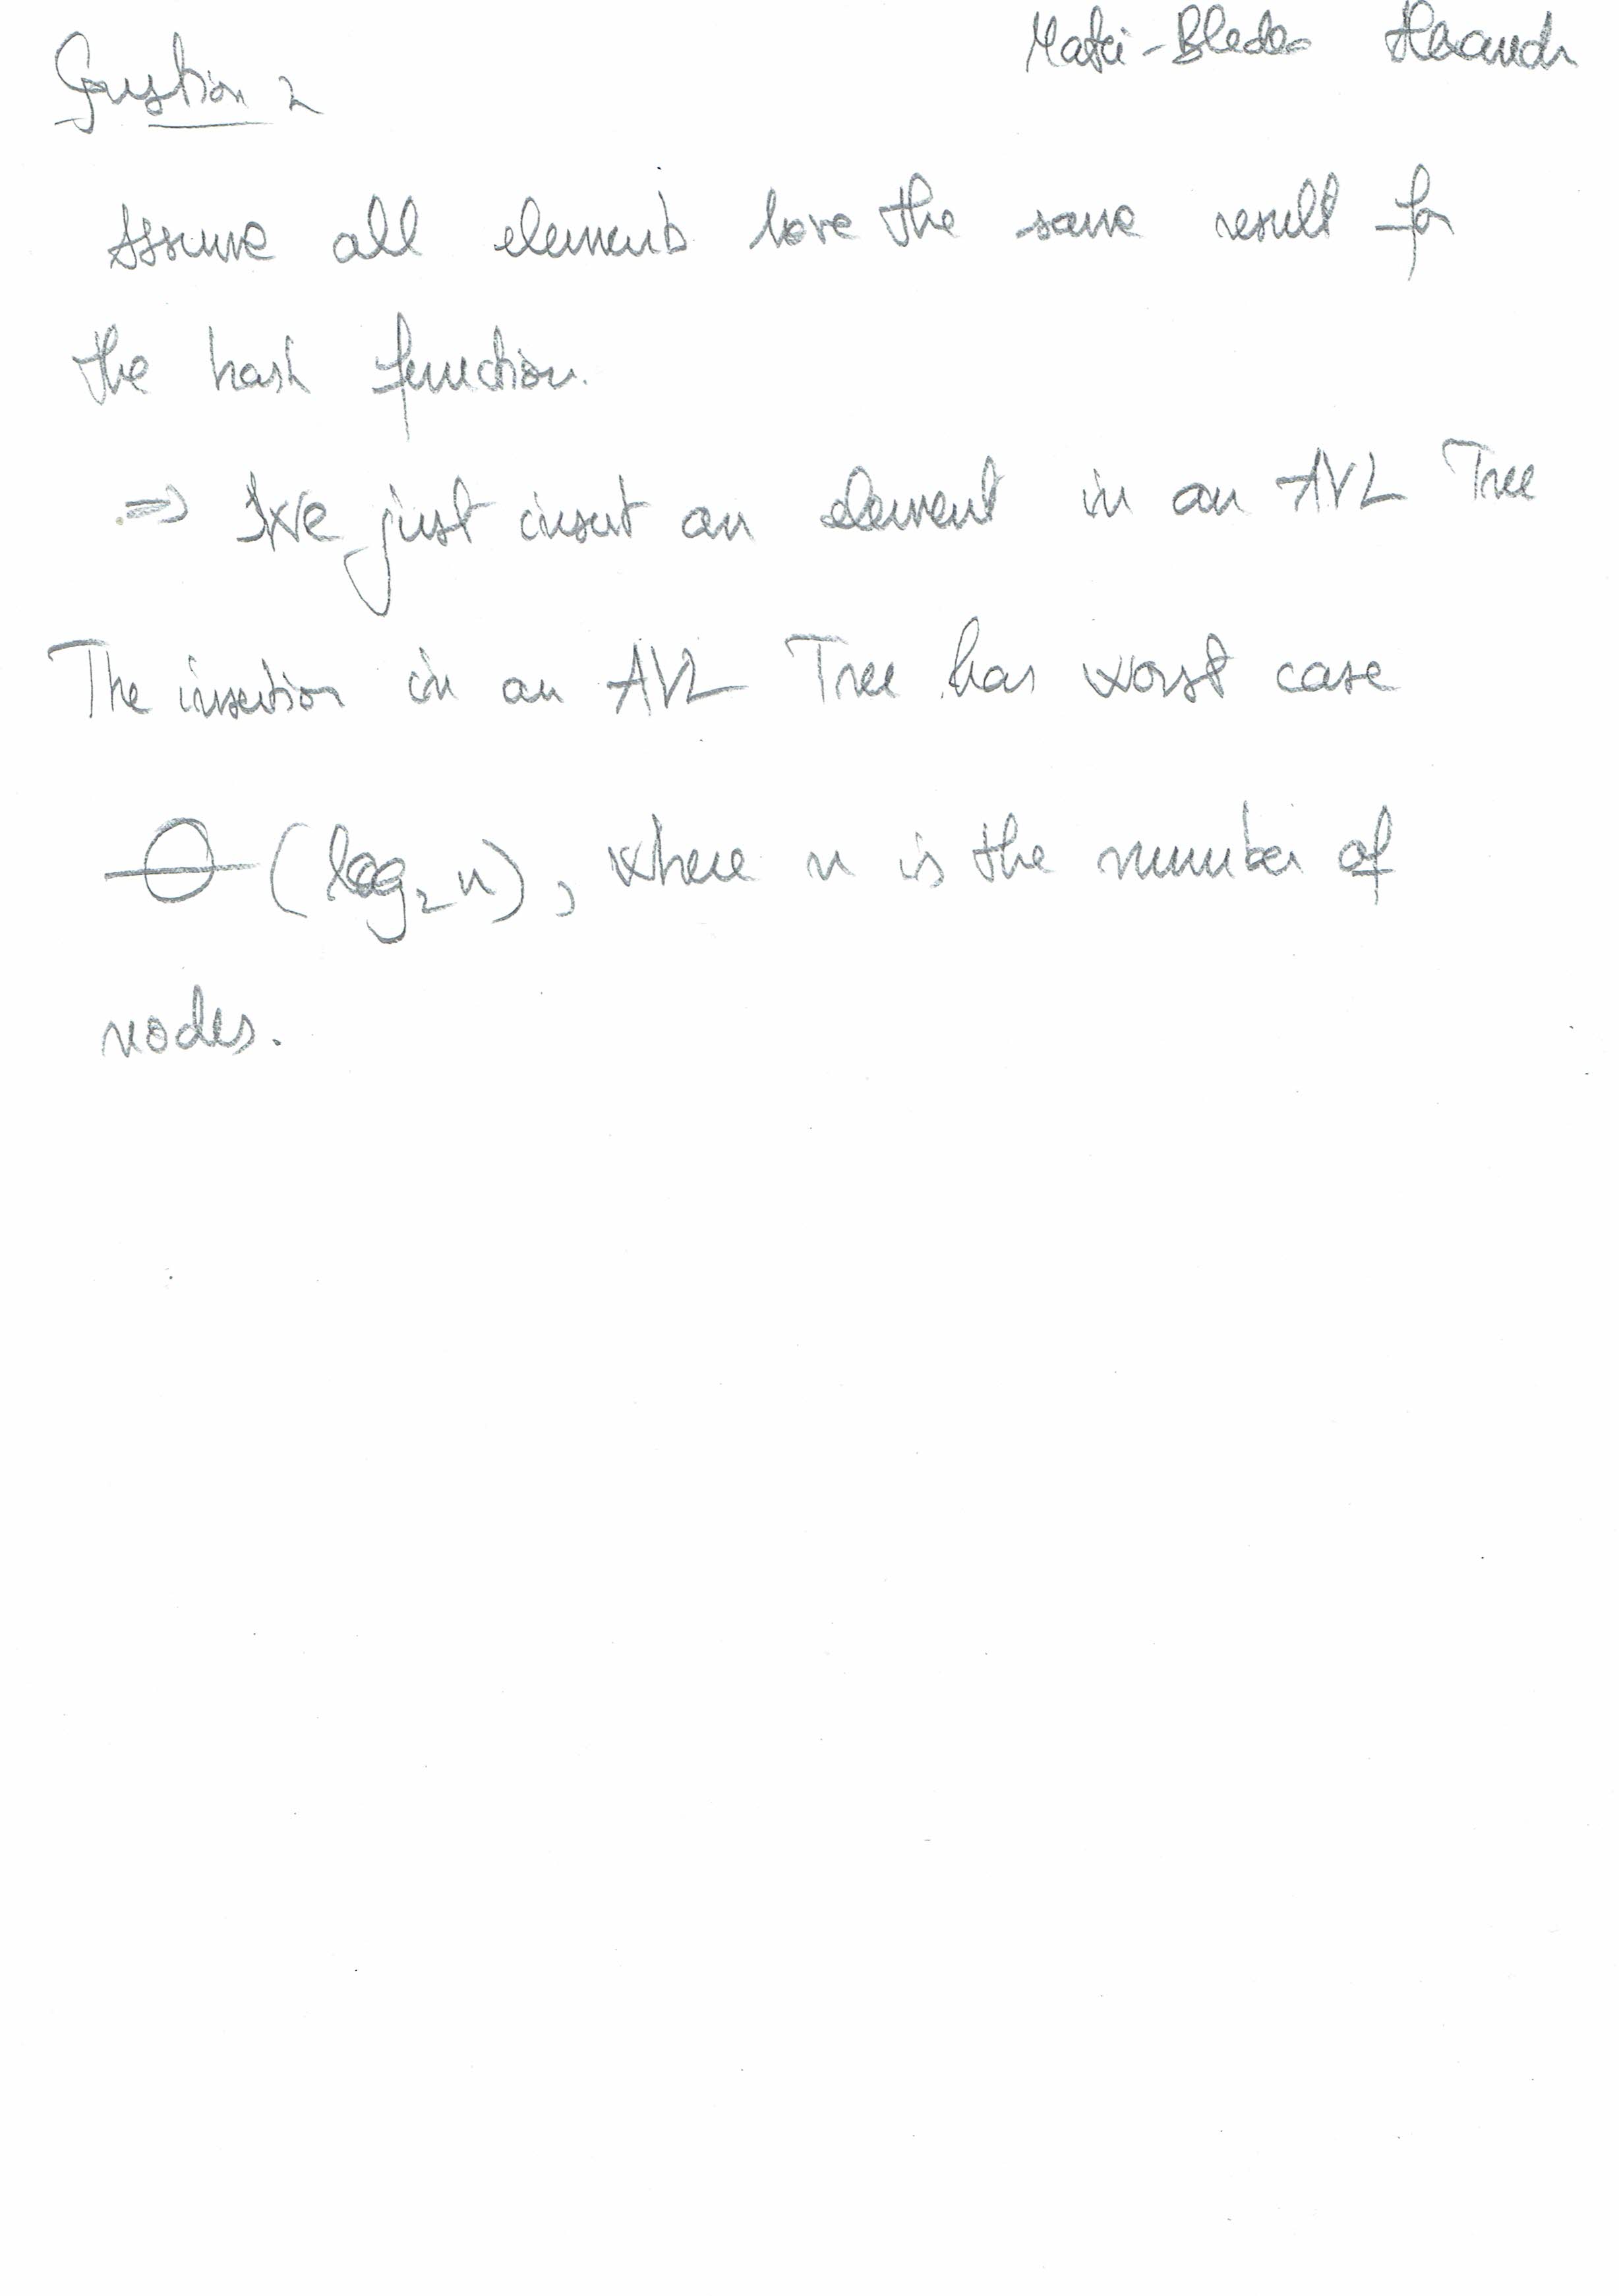 Matei-Bledea
Question 2
Assume all elements have the same result for
the hash function.
=> We just insert an element in an AVL Tree
The insertion in an AVL Tree has worst case
Θ(log₂n), where n is the number of
nodes.